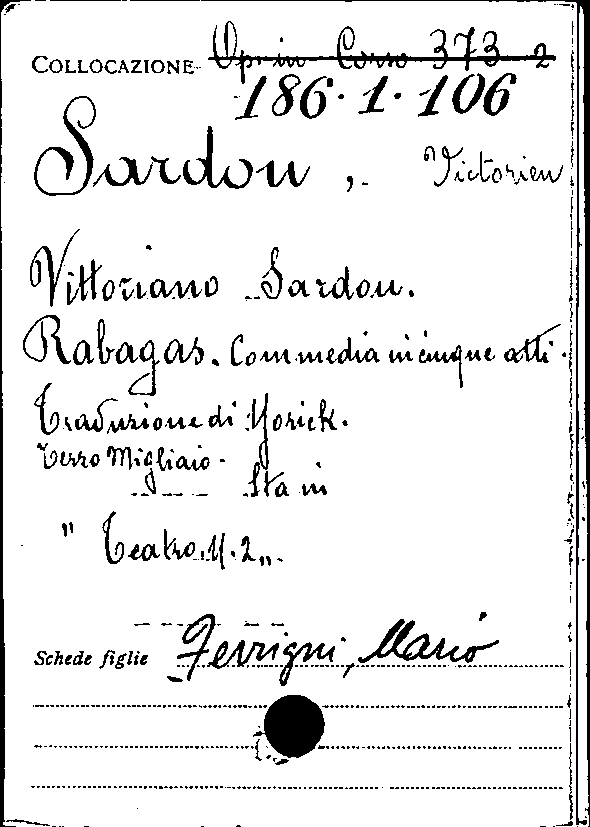 COLLOCAZIONE Op. in Corso 373 2
186.1.106
Sardou, Victorien
Vittoriano Sardou.
Rabagas. Commedia in cinque atti.
Traduzione di Yorick.
Terzo Migliaio.
Sta in
" Teatro. N. 2 „.
Schede figlie Ferrigni, Mario